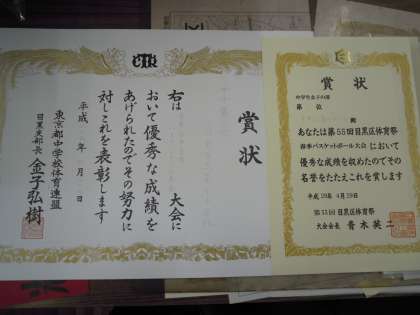 賞状
右は
大会に
おいて優秀な成績を
あげられたのでその努力に
対しこれを表彰します
平成
東京都中学校体育連盟
目黒支部長 金子弘樹
賞状
第 位
殿
あなたは第55回目黒区体育祭
春季バスケットボール大会において
優秀な成績を収めたのでその
名誉をたたえこれを賞します
平成19年4月29日
第55回目黒区体育祭
大会会長 青木英二